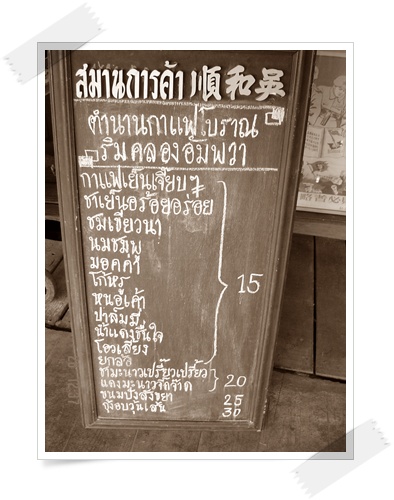 สมานการค้า 順和吳
ตำนานกาแฟโบราณ
ริมคลองอัมพวา
กาแฟเย็นเจี๊ยบๆ
ชาเย็นอร้อยอร่อย
ชมเขียวนา
นมชมพู
มอคค่า
โกหรู
หนอูเค้า
ปาล์มมี่
น้ำแดงชื่นใจ
โอวเลี้ยง
ยกล้อ
15
ชามะนาวเปรี๊ยวเปรี้ยว
แดงมะนาวจี๊ดจ๊าด
20
ขนมปังสังขยา 25
กุ้งอบวุ้นเส้น 30